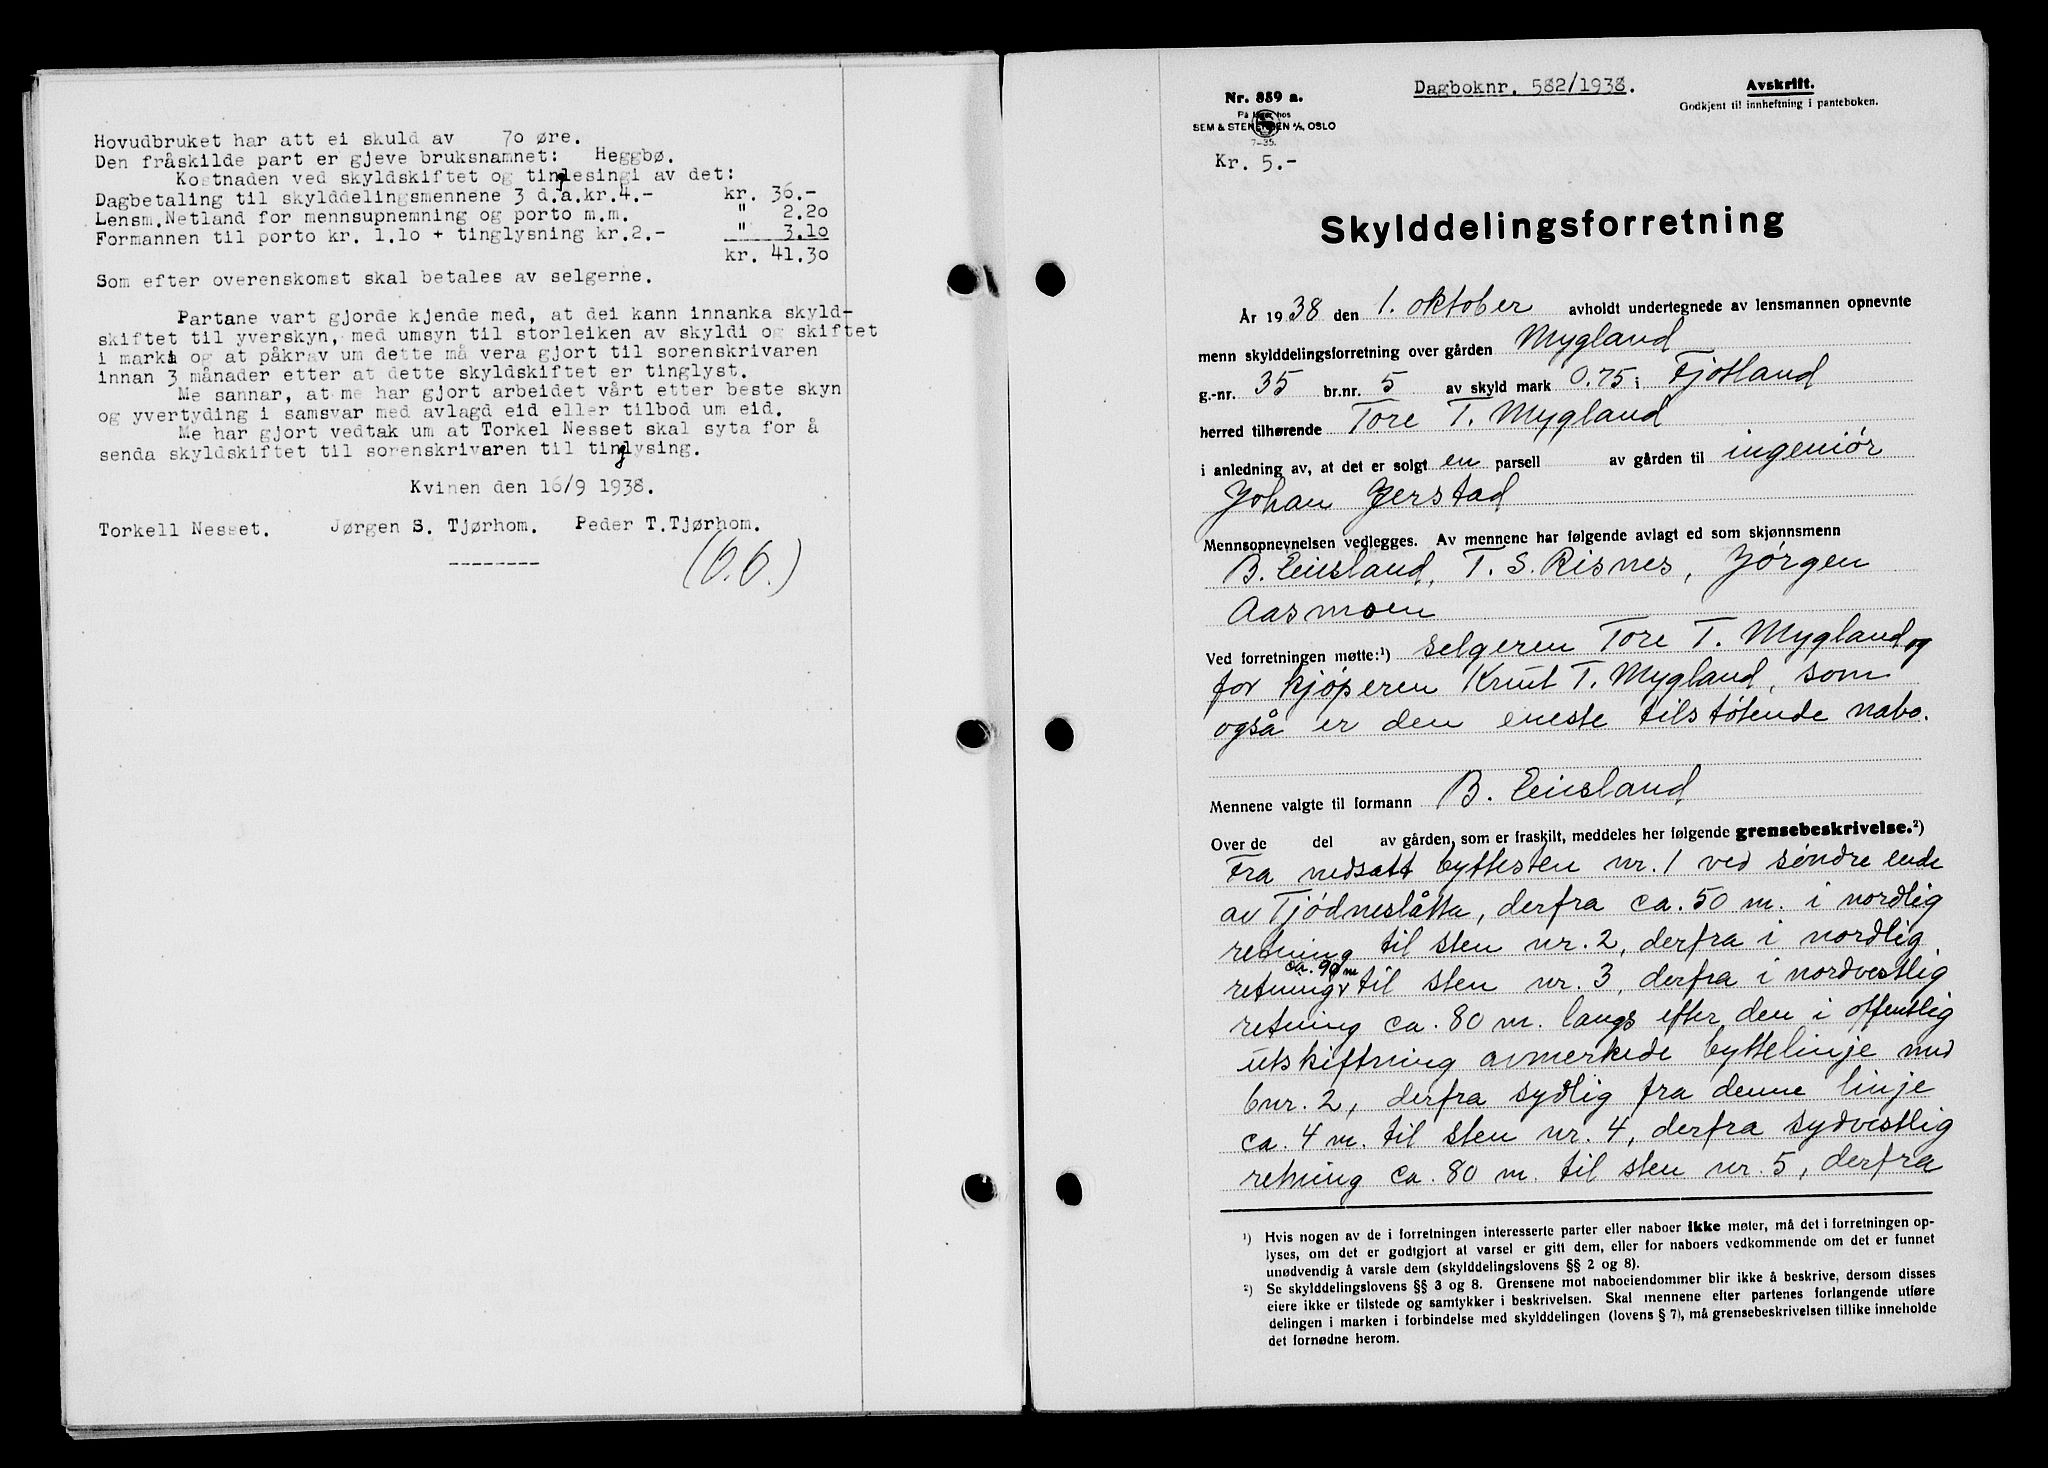 Hovudbruket har att ei skuld av 70 øre.
Den fråskilde part er gjeve bruksnamnet: Heggbø.
Kostnaden ved skyldskiftet og tinglesingi av det:
Dagbetaling til skylddelingsmennene 3 d.a.kr.4.- kr. 36.-
Lensm. Netland for mennsupnemning og porto m.m. " 2.20
Formannen til porto kr. 1.10 + tinglysning kr.2.- " 3.10
kr. 41.30
Som efter overenskomst skal betales av selgerne.
Partane vart gjorde kjende med, at dei kann innanka skyld-
skiftet til yverskyn, med umsyn til storleiken av skyldi og skiftet
i marki og at påkrav um dette må vera gjort til sorenskrivaren
innan 3 månader etter at dette skyldskiftet er tinglyst.
Me sannar, at me har gjort arbeidet vårt etter beste skyn
og yvertyding i samsvar med avlagd eid eller tilbod um eid.
Me har gjort vedtak um at Torkel Nesset skal syta for å
senda skyldskiftet til sorenskrivaren til tinglysing.
Kvinen den 16/9 1938.
Torkell Nesset. Jørgen S. Tjørhom. Peder T.Tjørhom.
--------
(O.O.)
Nr. 889 a.
På lager hos
SEM & STENERSEN A/S, OSLO
7-35.
Kr. 5.-
Dagboknr. 582/1938.
Avskrift.
Godkjent til innheftning i panteboken.
Skylddelingsforretning
År 1938 den 1. oktober avholdt undertegnede av lensmannen opnevnte
menn skylddelingsforretning over gården Mygland
g.-nr. 35 br.nr. 5 av skyld mark 0.75 i Fjotland
herred tilhørende Tore T. Mygland
i anledning av, at det er solgt en parsell av gården til ingeniør
Johan Jerstad
Mennsopnevnelsen vedlegges. Av mennene har følgende avlagt ed som skjønnsmenn
B. Eiesland, T. S. Risnes, Jørgen
Aasmoen
Ved forretningen møtte:¹) selgeren Tore T. Mygland og
for kjøperen Knut T. Mygland, som
også er den eneste tilstøtende nabo.
Mennene valgte til formann B. Eiesland
Over de del av gården, som er fraskilt, meddeles her følgende grensebeskrivelse.²)
Fra nedsatt byttesten nr. 1 ved søndre ende
av Tjødneslåtta, derfra ca. 50 m. i nordlig
retning til sten nr. 2, derfra i nordlig
ca. 90 m
retning til sten nr. 3, derfra i nordvestlig
retning ca. 80 m. langs efter den i offentlig
utskiftning avmerkede byttelinje med
bnr. 2, derfra sydlig fra denne linje
ca. 4 m. til sten nr. 4, derfra sydvestlig
retning ca. 80 m. til sten nr. 5, derfra
¹) Hvis nogen av de i forretningen interesserte parter eller naboer ikke møter, må det i forretningen op-
lyses, om det er godtgjort at varsel er gitt dem, eller for naboers vedkommende om det er funnet
unødvendig å varsle dem (skylddelingslovens §§ 2 og 8).
²) Se skylddelingslovens §§ 3 og 8. Grensene mot naboeiendommer blir ikke å beskrive, dersom disses
eiere ikke er tilstede og samtykker i beskrivelsen. Skal mennene efter partenes forlangende utføre
delingen i marken i forbindelse med skylddelingen (lovens § 7), må grensebeskrivelsen tillike inneholde
det fornødne herom.